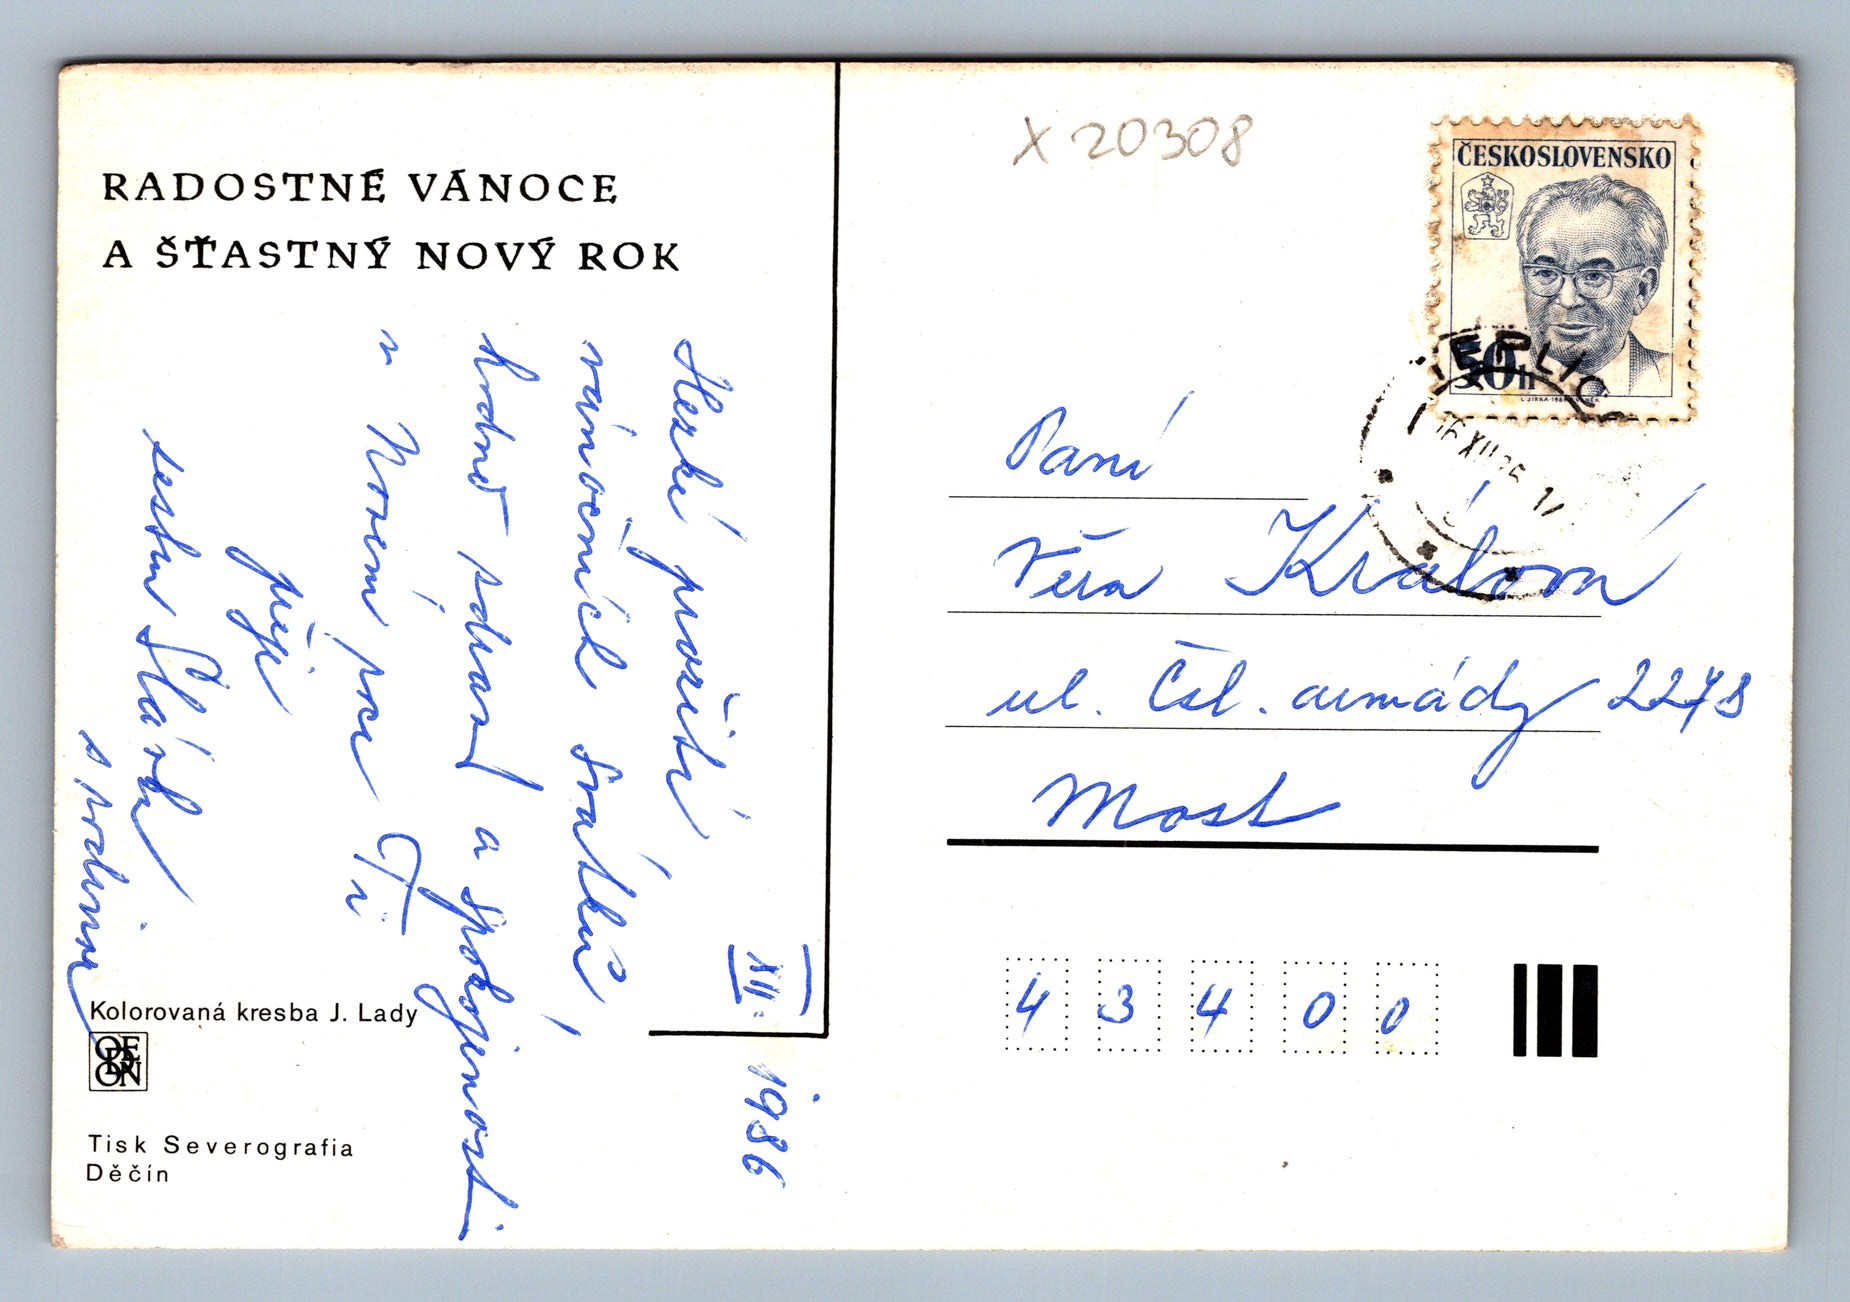 RADOSTNÉ VÁNOCE
A ŠŤASTNÝ NOVÝ ROK
XII. 1986
Hezké prožití
vánočních svátků
hodně zdraví a spokojenosti
v Novém roce Ti
přeji
sestra Slávka
s rodinou
Kolorovaná kresba J. Lady
ODEON
Tisk Severografia
Děčín
X 20308
ČESKOSLOVENSKO
50h
16 XII
Paní
Věra Králová
ul. Čsl. armády 2278
Most
43400